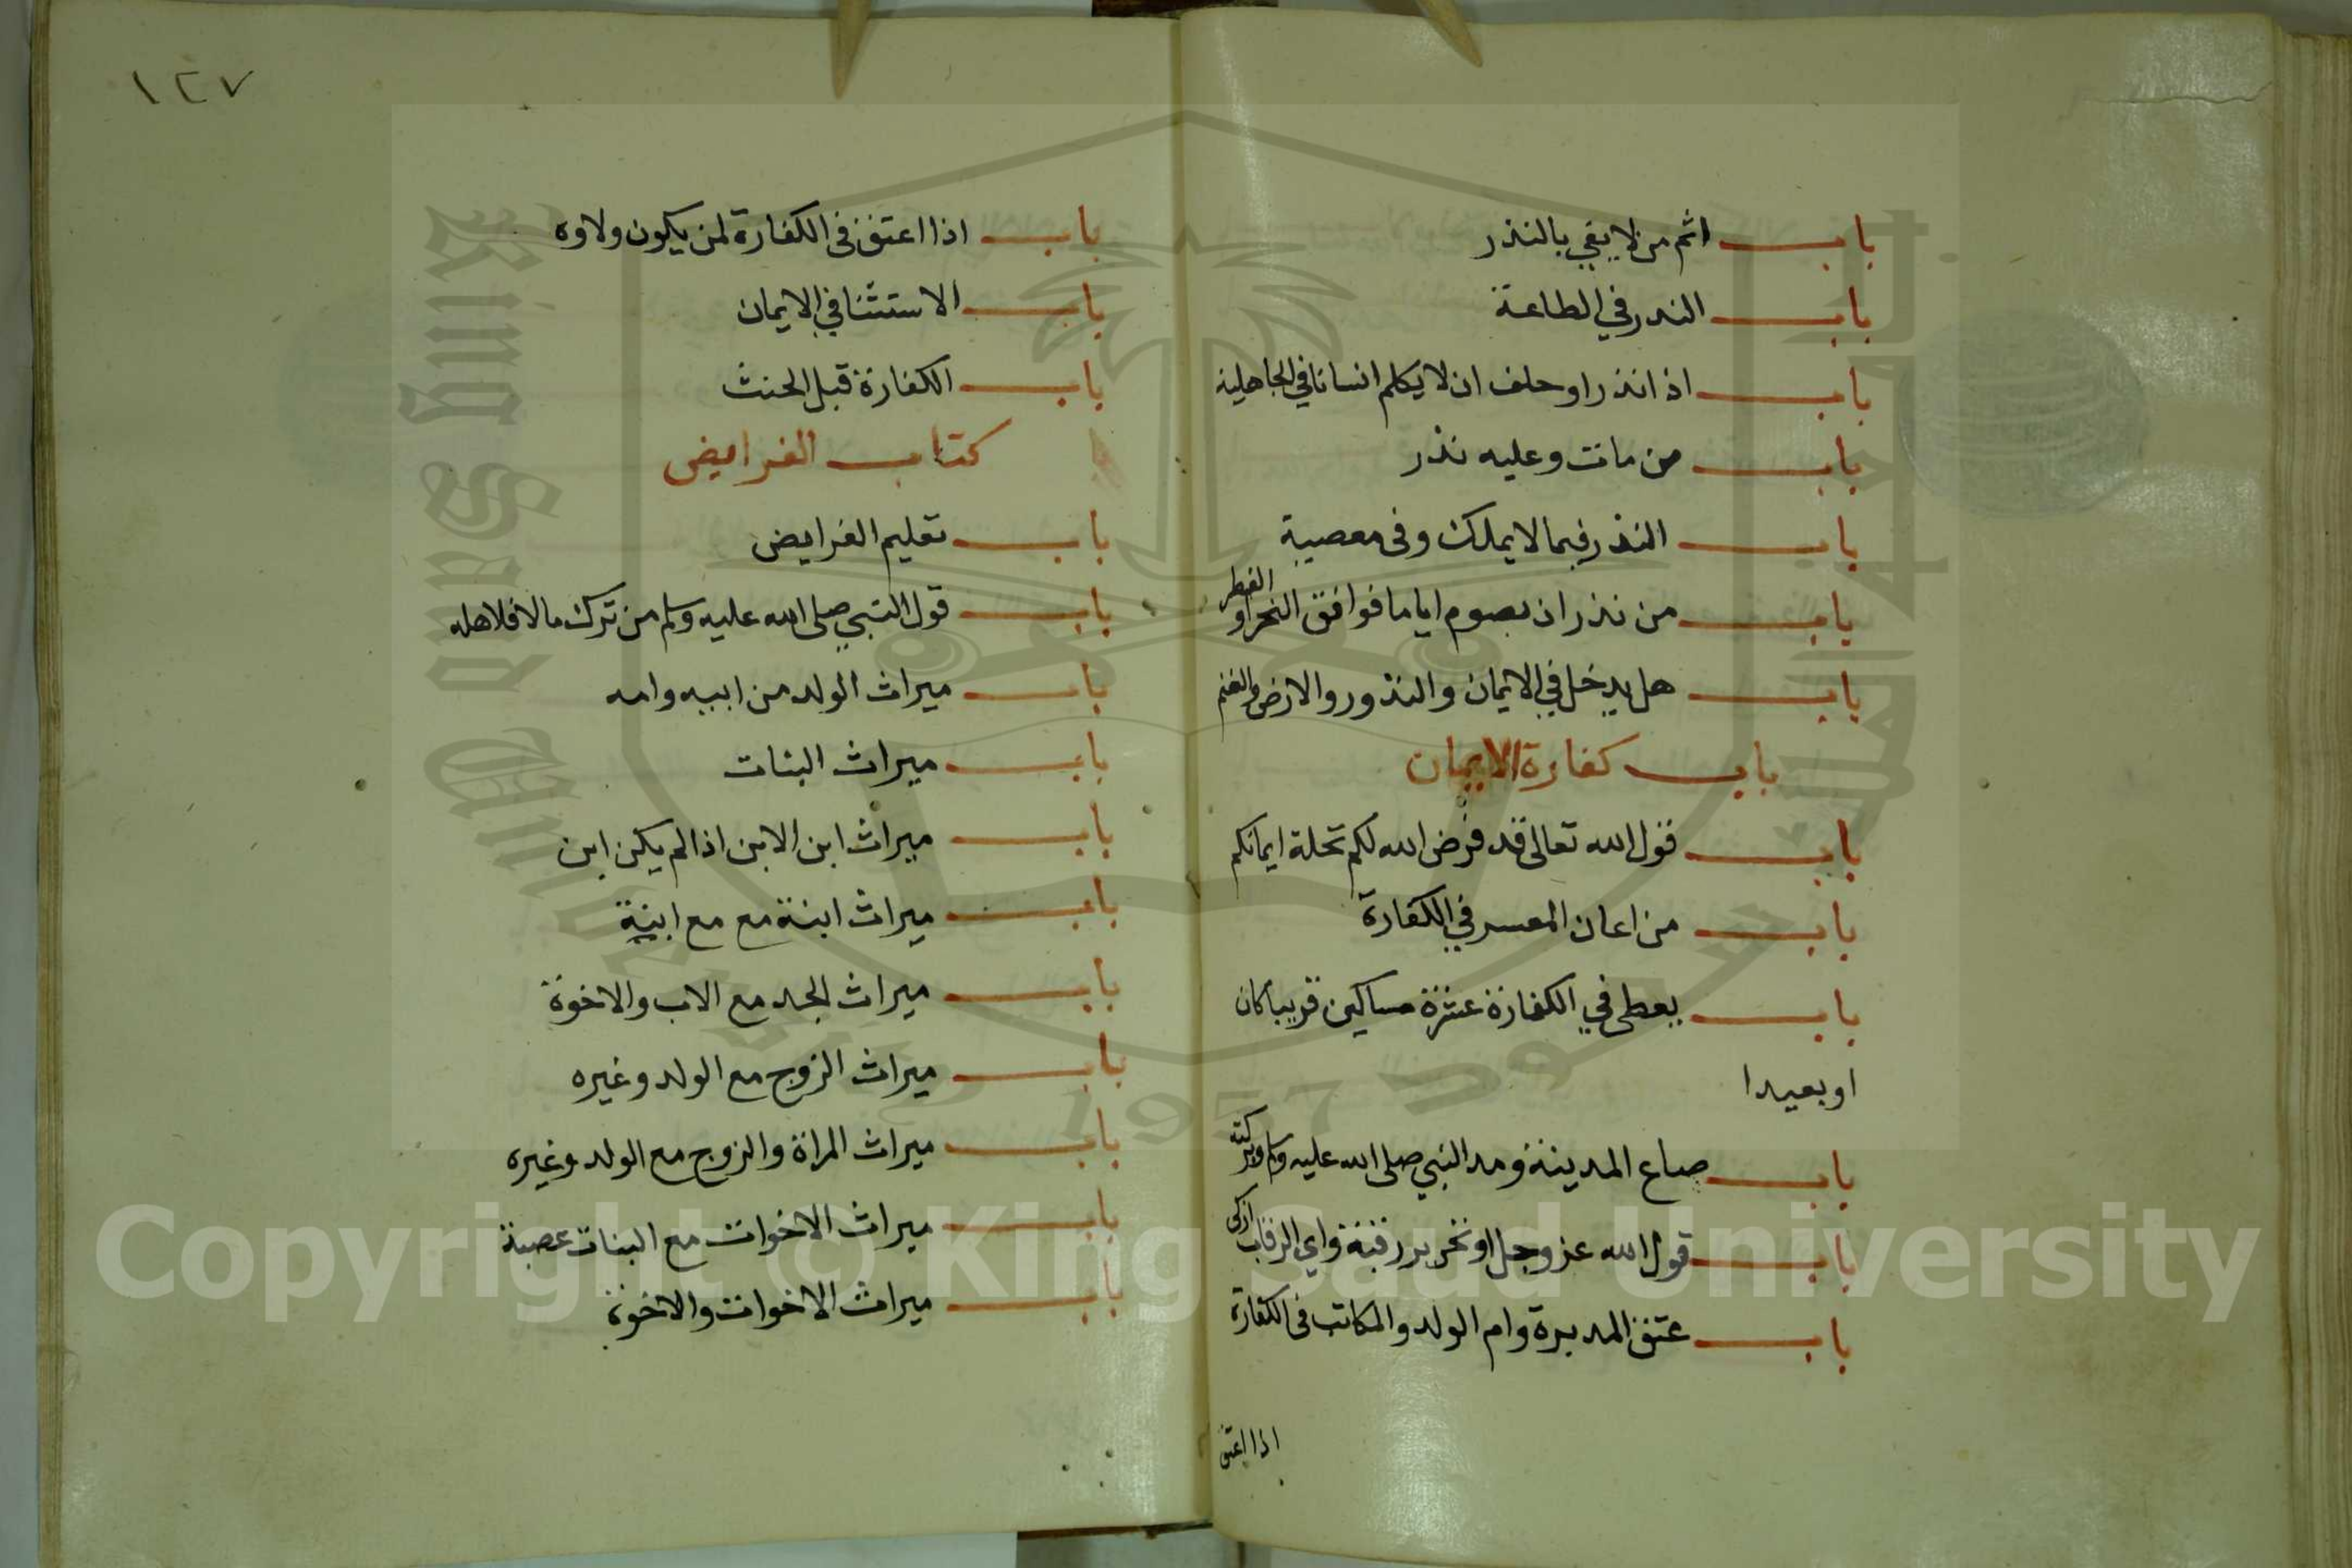 باب اثم من لا يفي بالنذر
باب النذر في الطاعة
باب اذا نذر او حلف ان لا يكلم انسانا في الجاهلية
باب من مات وعليه نذر
باب النذر فيما لا يملك وفى معصية
باب من نذر ان يصوم اياما فوافق النحر او الفطر
باب هل يدخل في الايمان والنذور والارض والغنم
باب كفارة الايمان
باب قول الله تعالى قد فرض الله لكم تحلة ايمانكم
باب من اعان المعسر في الكفارة
باب يعطى في الكفارة عشرة مساكين قريبا كان
او بعيدا
باب صاع المدينة ومد النبي صلى الله عليه وسلم وبركته
باب قول الله عز وجل او تحرير رقبة واي الرقاب ازكى
باب عتق المدبرة وام الولد والمكاتب فى الكفارة
اذا اعتق
١٢٧
باب اذا اعتق فى الكفارة لمن يكون ولاوه
باب الاستثنا في الايمان
باب الكفارة قبل الحنث
كتاب الفرايض
باب تعليم الفرايض
باب قول النبي صلى الله عليه وسلم من ترك مالا فلاهله
باب ميراث الولد من ابيه وامه
باب ميراث البنات
باب ميراث ابن الابن اذا لم يكن ابن
باب ميراث ابنة مع مع ابنة
باب ميراث الجد مع الاب والاخوة
باب ميراث الزوج مع الولد وغيره
باب ميراث المراة والزوج مع الولد وغيره
باب ميراث الاخوات مع البنات عصبة
باب ميراث الاخوات والاخوة
Copyright © King Saud University
King Saud University
1957